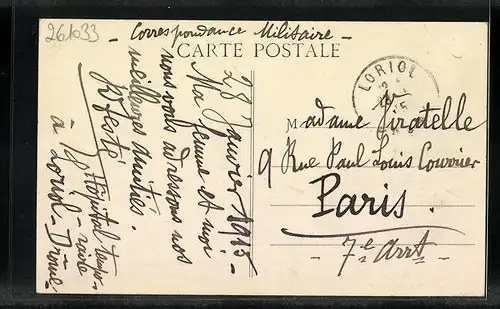 261033
- Correspondance Militaire -
CARTE POSTALE
LORIOL
28 Janvier 1915 -
Ma femme et moi
nous vous adressons nos
meilleures amitiés.
Hôpital tempo-
raire
à Loriol - Drôme
Madame Piratelle
9 Rue Paul Louis Courrier
Paris.
- 7e Arrt -